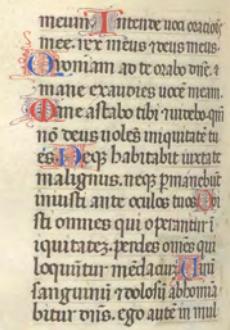 meum. Intende uoci orationis
mee. rex meus ⁊ deus meus.
Quoniam ad te orabo dn̄e. ⁊
mane exaudies uocē meam.
Mane astabo tibi ⁊ uidebo. qm̄
nō deus uoles iniquitatē tu
es. Neqꝫ habitabit iuxta te
malignus. neqꝫ ꝑmanebūt
iniusti ante oculos tuos. Odi
sti omnes qui operantur ī
iquitateꝫ. perdes om̄es qui
loquūtur mēdaciū. Uirū
sanguinū ⁊ dolosū abhomīa
bitur dn̄s. ego autē in mul